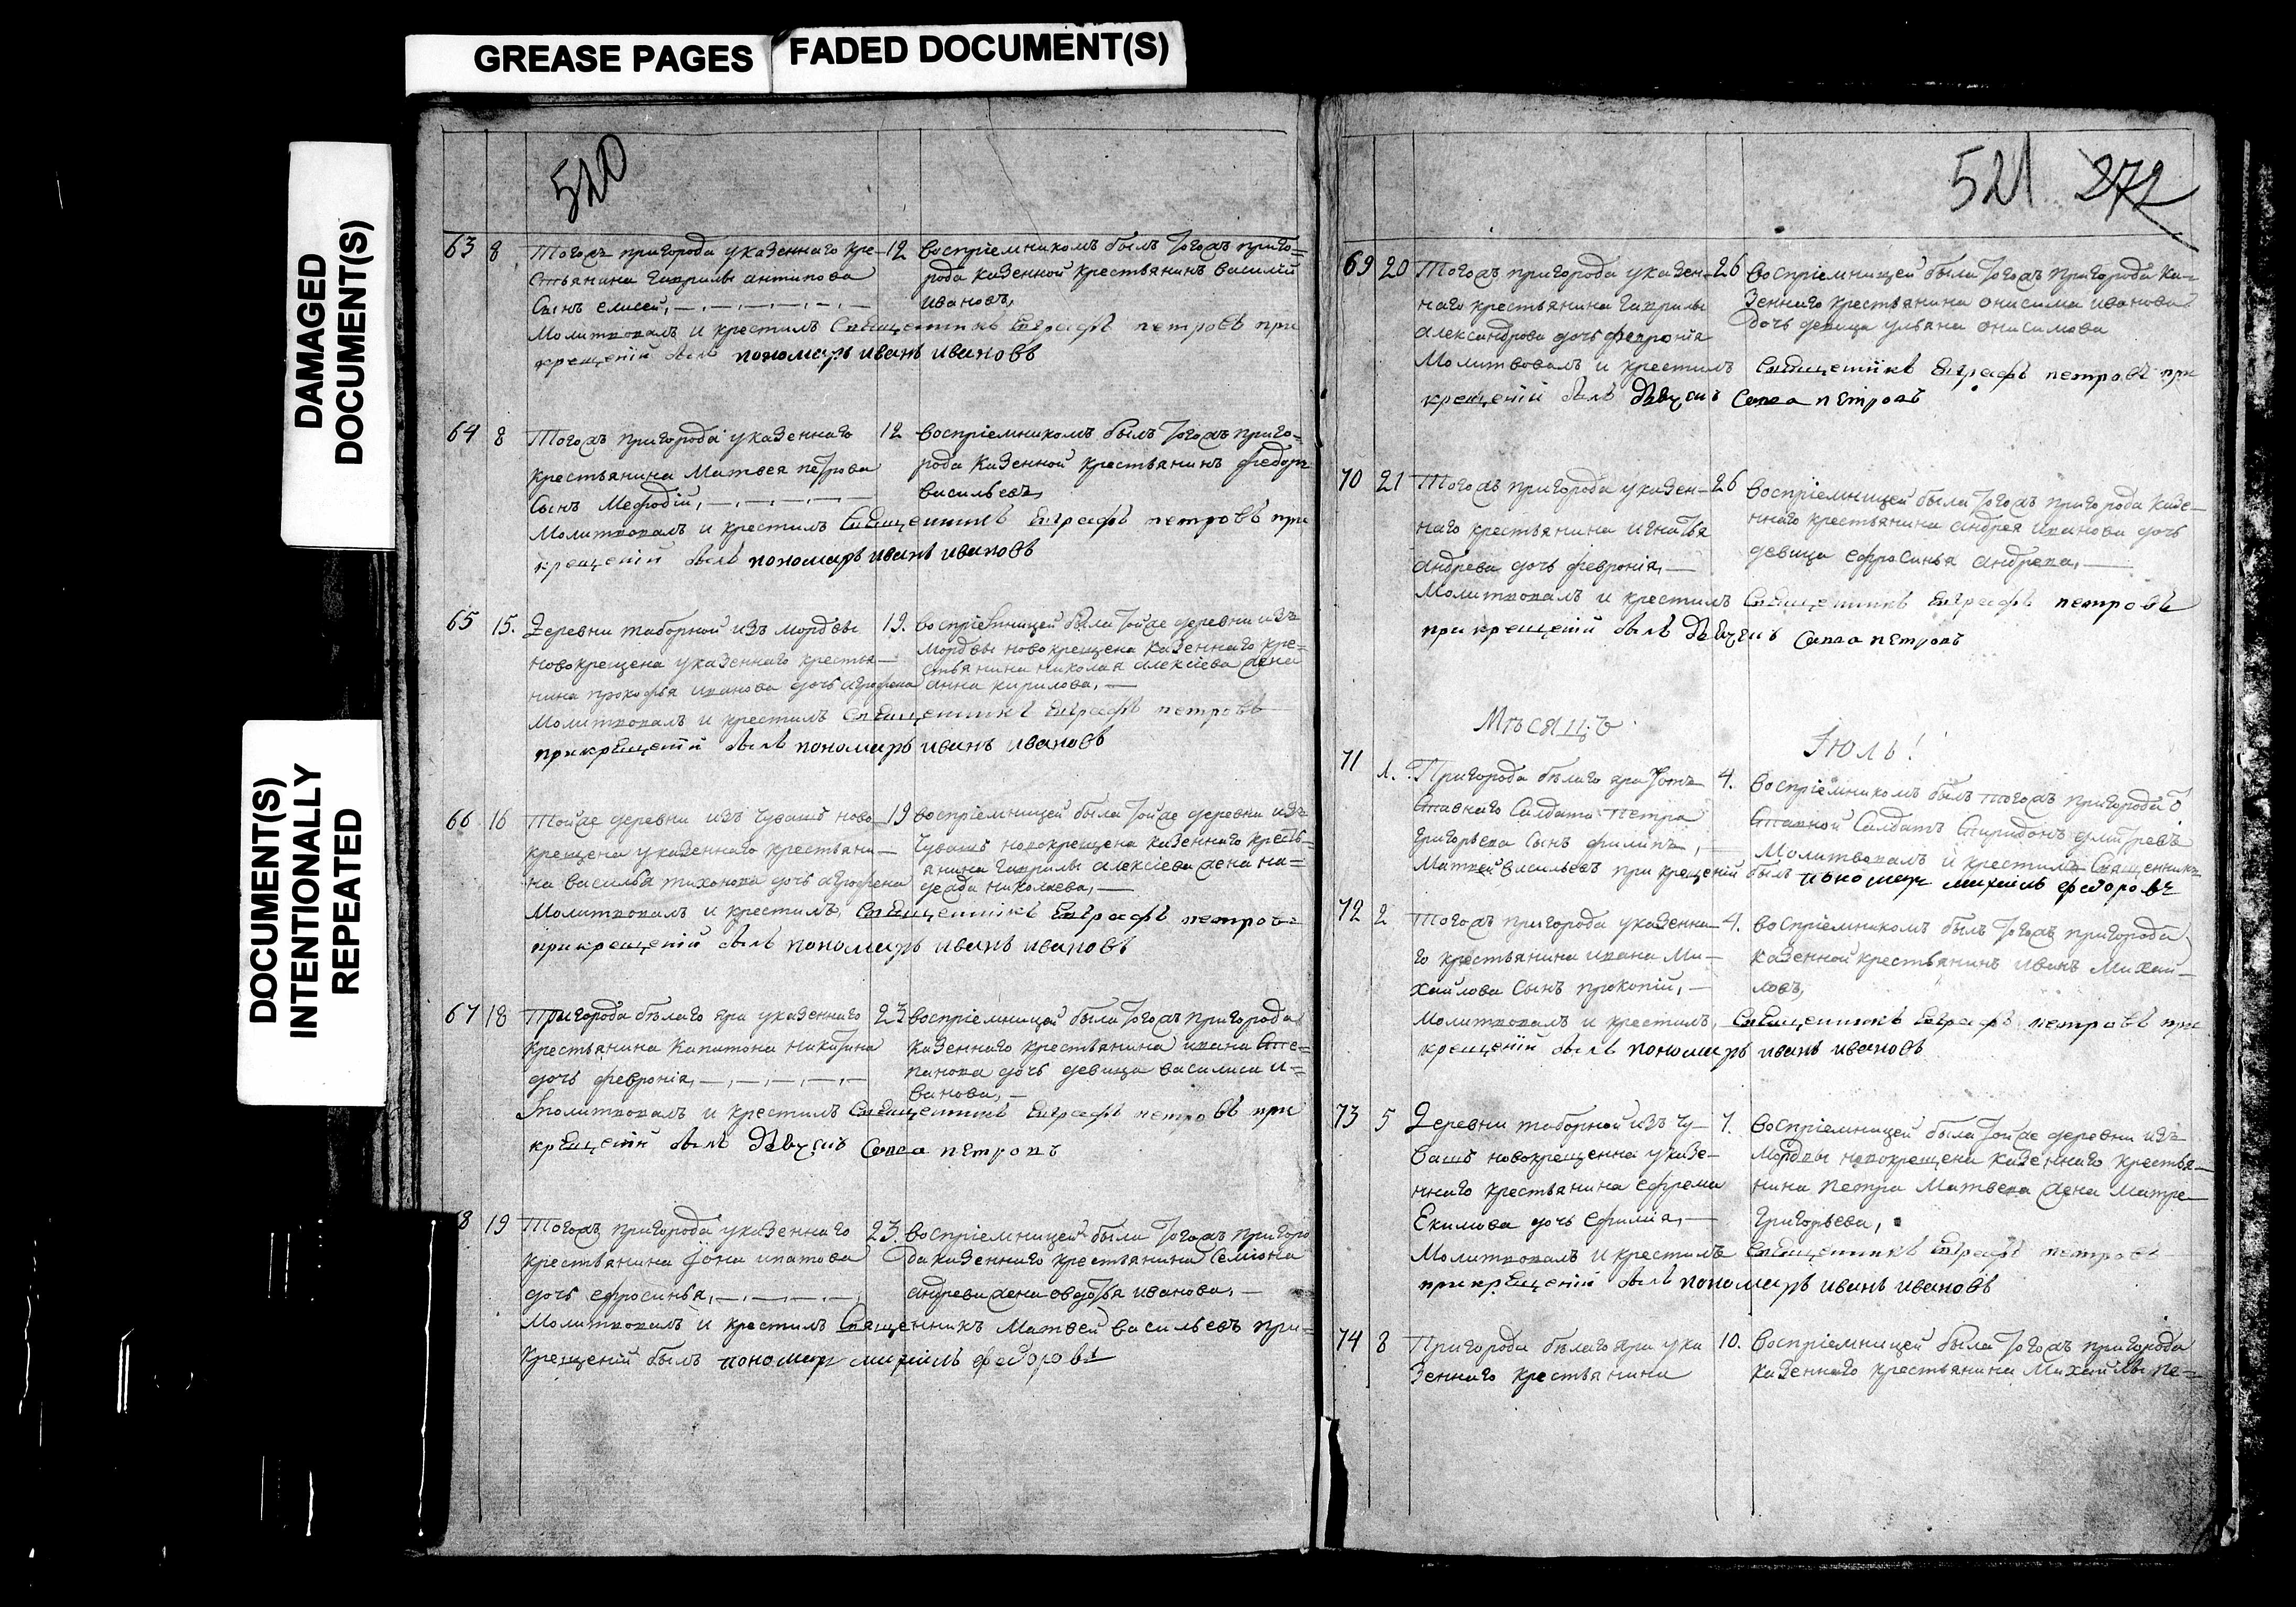 GREASE PAGES
FADED DOCUMENT(S)
DAMAGED
DOCUMENT(S)
DOCUMENT(S)
INTENTIONALLY
REPEATED
520
63 8 Тогожъ пригорода указеннаго кре-
стьянина Гаврилы антипова
Сынъ елисей,
12 восприемникомъ былъ тогожъ приго=
рода казенной крестьянинъ василий
ивановъ,
Молитвовалъ и крестилъ Священникъ Евграфъ петровъ при
крещении былъ пономарь иванъ ивановъ
64 8 Тогожъ пригорода указеннаго
крестьянина Матвея петрова
Сынъ Мефодий,
12 восприемникомъ былъ тогожъ приго=
рода казенной крестьянинъ федоръ
васильевъ,
Молитвовалъ и крестилъ Священникъ Евграфъ петровъ при
крещении былъ пономарь иванъ ивановъ
65 15. Деревни таборной изъ мордвы
новокрещена указеннаго крестья-
нина прокофья иванова дочь агрофена
19. восприемницей была тойже деревни изъ
мордвы новокрещена казеннаго кре=
стьянина николая алексиева жена
анна кирилова,
Молитвовалъ и крестилъ Священникъ Евграфъ петровъ
при крещении былъ пономарь иванъ ивановъ
66 16 Тойже деревни изъ чувашъ ново-
крещена указеннаго крестьяни-
на василья тихонова дочь агрофена
19 восприемницей была тойже деревни изъ
чувашъ новокрещена казеннаго кресть-
янина Гаврилы алексиева жена на=
дежда николаева,
Молитвовалъ и крестилъ, Священникъ Евграфъ петровъ
при крещении былъ пономарь иванъ ивановъ
67 18 Пригорода бѣлаго яра указеннаго
крестьянина Капитона никитина
дочь феврония,
23 восприемницей была тогожъ пригорода
казеннаго крестьянина ивана Сте=
панова дочь девица василиса и=
ванова,
Молитвовалъ и крестилъ Священникъ Евграфъ петровъ при
крещении былъ дьячекъ Савва петровъ
8 19 Тогожъ пригорода указеннаго
крестьянина Иона ипатова
дочь ефросинья,
23. восприемницей была тогожъ пригоро
да казеннаго крестьянина Семиона
андреева жена овдотья иванова,
Молитвовалъ и крестилъ Священникъ Матвей васильевъ при-
крещении былъ пономарь михаилъ федоровъ
521 272
69 20 Тогожъ пригорода указен-
наго крестьянина Гаврилы
александрова дочь феврония
26 восприемницей была тогожъ пригорода ка=
зеннаго крестьянина онисима иванова
дочь девица ульяна онисимова
Молитвовалъ и крестилъ Священникъ Евграфъ петровъ при
крещении былъ дьячекъ Савва петровъ
70 21 Тогожъ пригорода указен-
наго крестьянина игнатья
андреева дочь феврония,
26 восприемницей была тогожъ пригорода казе-
ннаго крестьянина андрея иванова дочь
девица ефросинья андреева,
Молитвовалъ и крестилъ Священникъ Евграфъ петровъ
при крещении былъ дьячекъ Савва петровъ
Мѣсяцъ Июль!
71 1. Пригорода бѣлаго яра от
ставнаго Салдата петра
Григорьева Сынъ филипъ,
4. восприемникомъ былъ тогожъ пригорода о
ставной Салдатъ Спиридонъ дмитревъ
Молитвовалъ и крестилъ Священникъ
Матвей васильевъ при крещении былъ пономарь михаилъ федоровъ
72 2 Тогожъ пригорода указенна-
го крестьянина ивана Ми-
хайлова Сынъ прокопий,
4. восприемникомъ былъ тогожъ пригорода
казенной крестьянинъ иванъ Михай-
ловъ,
Молитвовалъ и крестилъ, Священникъ Евграфъ петровъ при
крещении былъ пономарь иванъ ивановъ
73 5 Деревни таборной изъ чу-
вашъ новокрещенна указе-
ннаго крестьянина ефрема
Екимова дочь ефимия,
7. восприемницей была тойже деревни изъ
мордвы новокрещена казеннаго крестья-
нина петра Матвеева жена матре
Григорьева,
Молитвовалъ и крестилъ Священникъ Евграфъ петровъ
при крещении былъ пономарь иванъ ивановъ
74 8 Пригорода бѣлаго яра ука
зеннаго крестьянина
10. восприемницей была тогожъ пригорода
казеннаго крестьянина Михайлы пе=